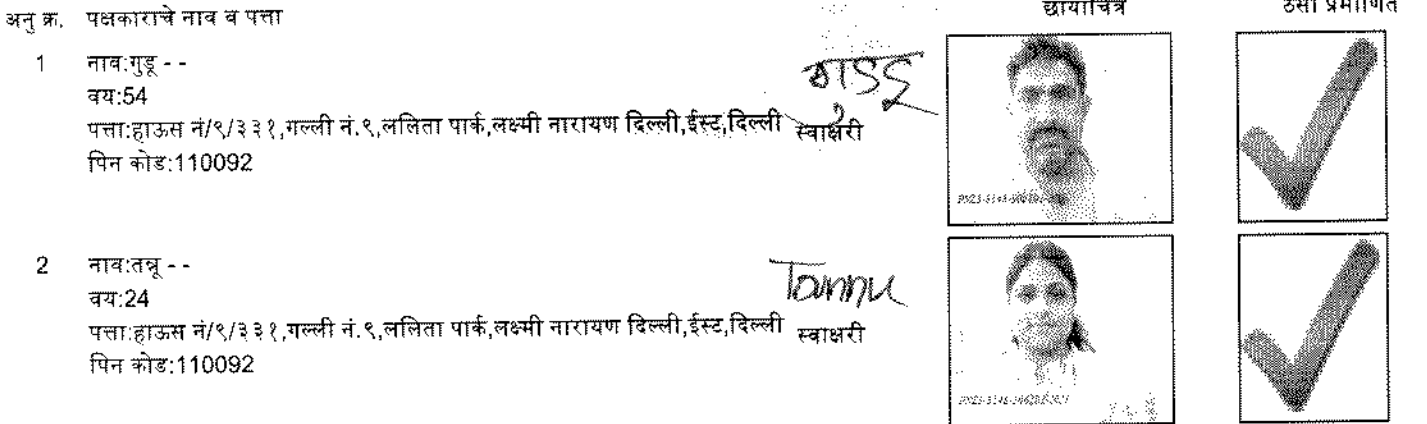 अनु क्र. पक्षकाराचे नाव व पत्ता छायाचित्र ठसा प्रमाणित
1 नाव:गुडू - -
वय:54
पत्ता:हाऊस नं/९/३३१,गल्ली नं.९,ललिता पार्क,लक्ष्मी नारायण दिल्ली,ईस्ट,दिल्ली
पिन कोड:110092
गुडडू
स्वाक्षरी
2 नाव:तन्नू - -
वय:24
पत्ता:हाऊस नं/९/३३१,गल्ली नं.९,ललिता पार्क,लक्ष्मी नारायण दिल्ली,ईस्ट,दिल्ली
पिन कोड:110092
Tannu
स्वाक्षरी